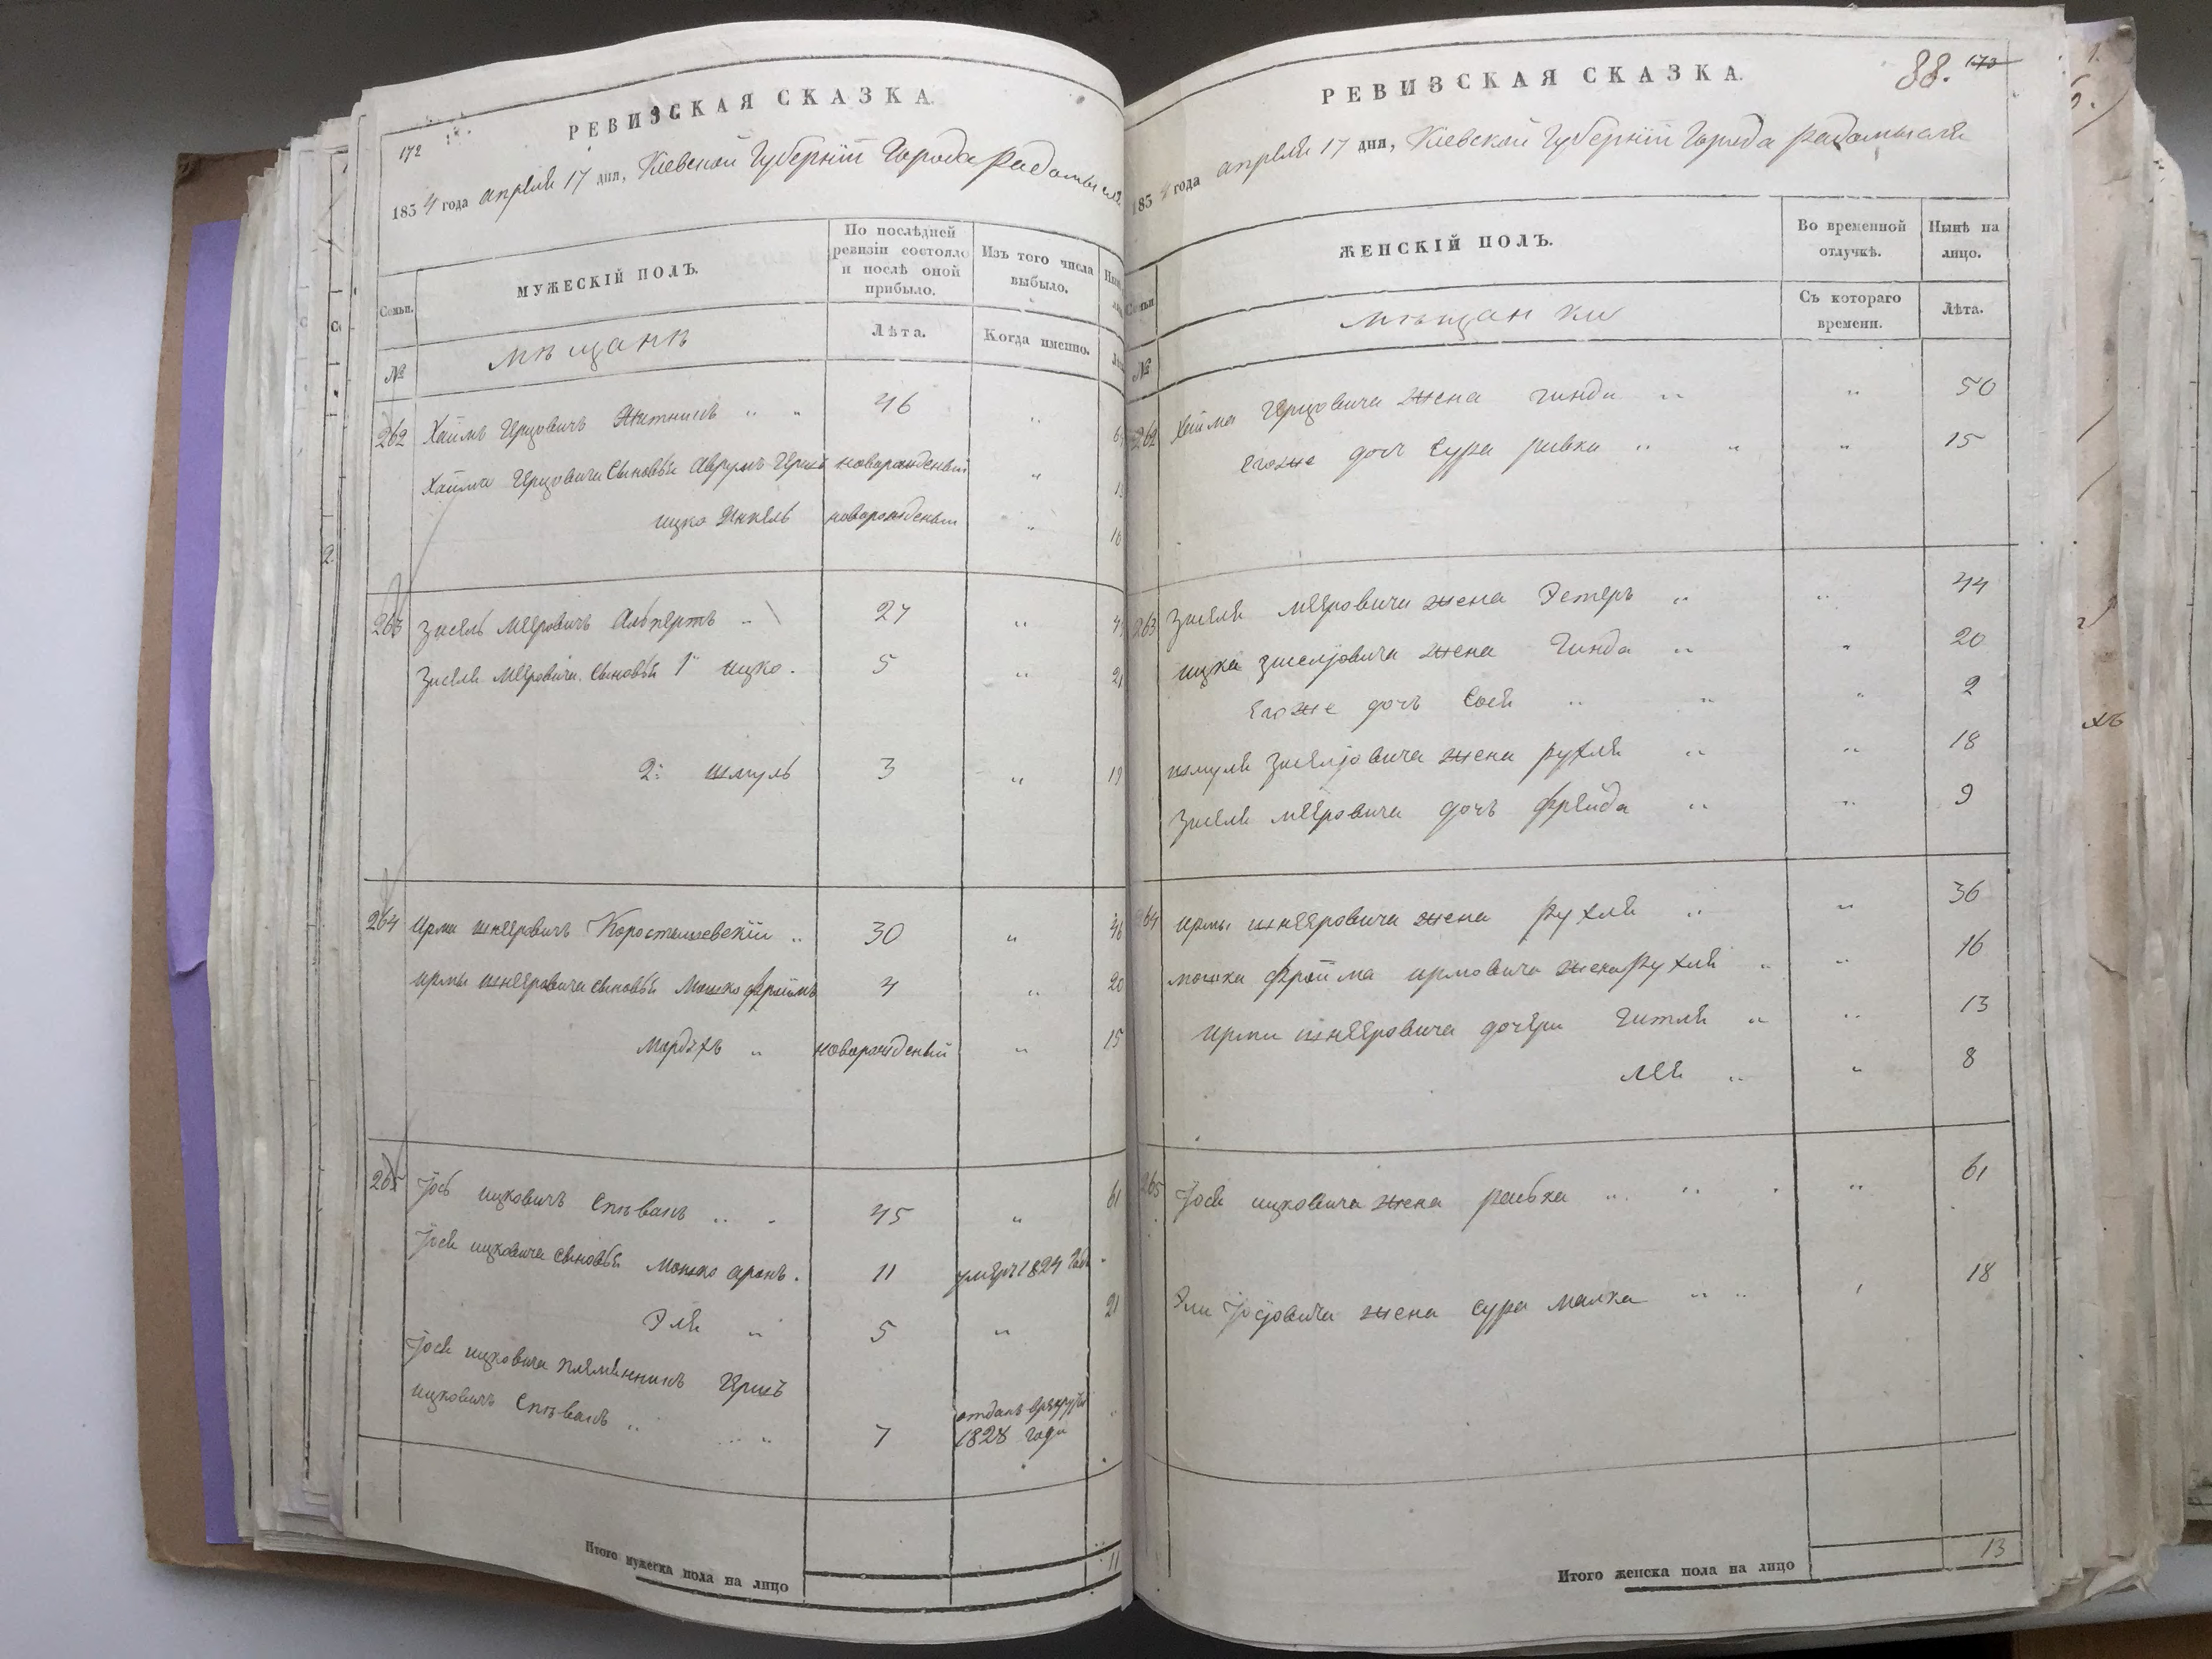 172
РЕВИЗСКАЯ СКАЗКА.
1834 года апреля 17 дня, Киевской Губернии Города Радомысля
Семьи.
МУЖЕСКІЙ ПОЛЪ.
По послѣдней ревизіи состояло и послѣ оной прибыло.
Изъ того числа выбыло.
№
мѣщанѣ
Лѣта.
Когда именно.
262 Хаимъ Герцовичъ Житникъ 46
Хаима Герцовича сыновья Аврумъ Гершъ новорожденый
ицко Янкель новорожденый 16
263 Зисель Мееровичъ Альпертъ 27
Зиселя Мееровича сыновья 1й ицко. 5 21
2й шмуль 3 19
264 Ирма шнееровичъ Коростышевскій 30 46
Ирмы шнееровича сыновья Мошко фроимъ 4 20
Мордхъ новорожденый 15
265 Іось ицковичъ Спѣвакъ 45 61
Іося ицковича сыновья Мошко аронъ. 11 умеръ 1824 года
Эля 5 21
Іося ицковича племянникъ Гершъ
ицковичъ Спѣвакъ 7 отданъ врекруты 1828 года
Итого мужеска пола на лицо 11
88. 173
РЕВИЗСКАЯ СКАЗКА.
1834 года апреля 17 дня, Киевской Губернии Города Радомысля
Семьи
ЖЕНСКІЙ ПОЛЪ.
Во временной отлучкѣ.
Нынѣ на лицо.
№
мѣщанки
Съ котораго времени.
Лѣта.
262 Хаима Герцовича жена гинда 50
Егоже доч Сура ривка 15
263 Зиселя Мееровича жена Эстеръ 44
ицка зиселіовича жена Гинда 20
Егоже дочь Сося 2
шмуля Зиселіовича жена рухля 18
Зиселя Мееровича дочь фрейда 9
264 Ирмы шнееровича жена Рухля 36
мошка фройма ирмовича жена Рухля 16
Ирми шнееровича дочери Гитля 13
Лея 8
265 Іося ицковича жена раебка 61
Эли Іосіовича жена сура малка 18
Итого женска пола на лицо 13